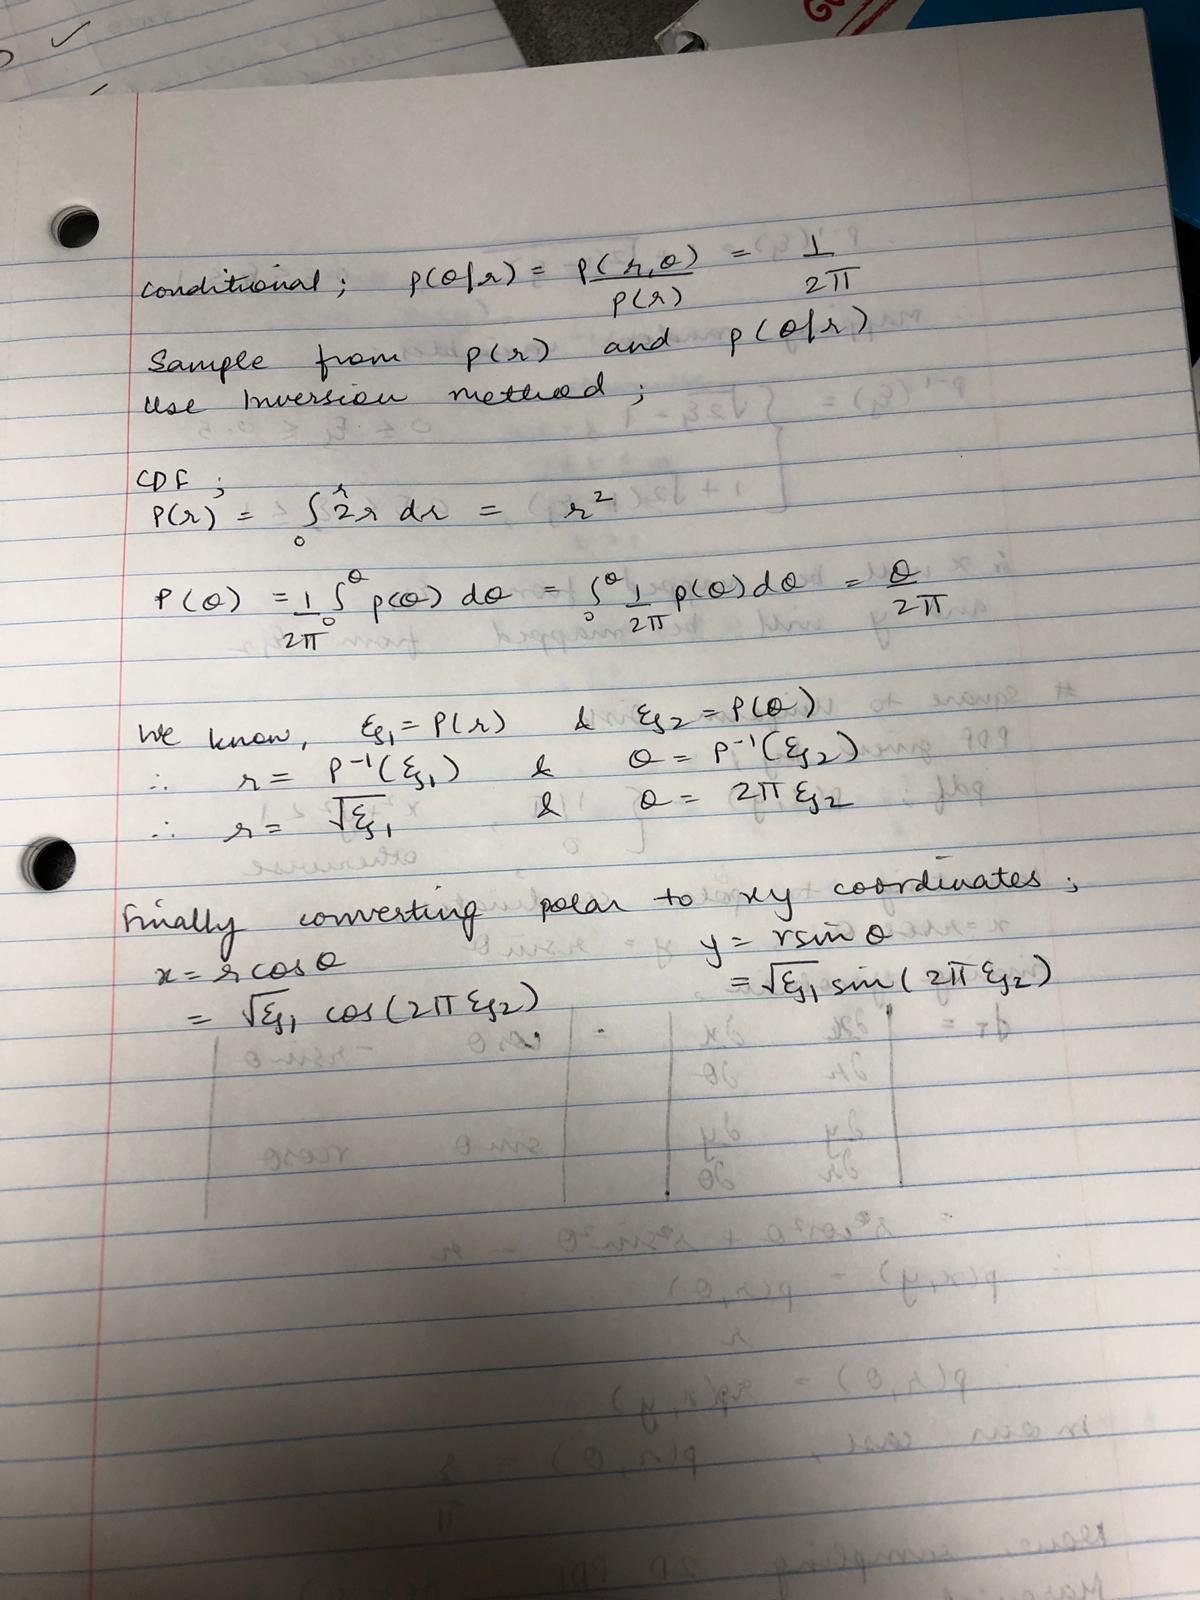 conditional; p(θ|r) = p(r,θ)/p(r) = 1/2π
Sample from p(r) and p(θ|r)
Use Inversion method;
CDF;
P(r) = ∫₀ʳ 2r dr = r²
P(θ) = 1/2π ∫₀^θ p(θ) dθ = ∫₀^θ 1/2π p(θ) dθ = θ/2π
We know, ξ₁ = P(r) & ξ₂ = P(θ)
∴ r = P⁻¹(ξ₁) & θ = P⁻¹(ξ₂)
∴ r = √ξ₁ & θ = 2π ξ₂
Finally converting polar to xy coordinates;
x = r cos θ y = r sin θ
= √ξ₁ cos(2π ξ₂) = √ξ₁ sin(2π ξ₂)